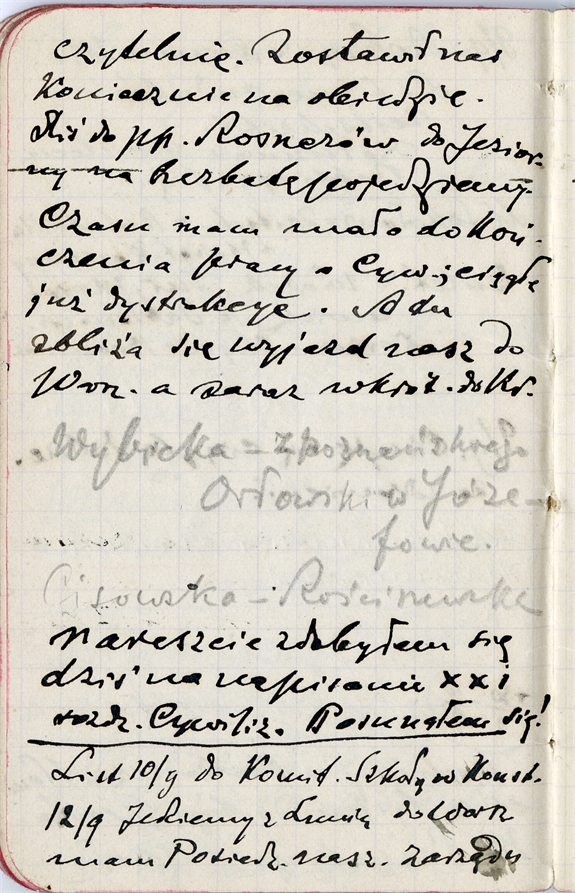 czytelnię. Zostawił nas
Koniecznie na obiedzie.
Dziś do pp. Rosnerów do Jezior-
ny na herbatę pojedziemy.
Czasu mam mało do Koń-
czenia pracy o Cyw-; ciągłe
już dystrakcye. A tu
zbliża się wyjazd nasz do
Wor. a zaraz wkrót. do Kr.
Wybicka – z Poznańskiego
Orłowski w Józe-
fowie.
Cisowska – Rościszewska
nareszcie zdobyłem się
dziś na napisanie XXI
rozdz. Cywiliz. Posunąłem się!
List 10/9 do Komit. Szkoły w Konst.
12/9 Jedziemy z Lunią do
mam Posiedz. nasz. Zarządu